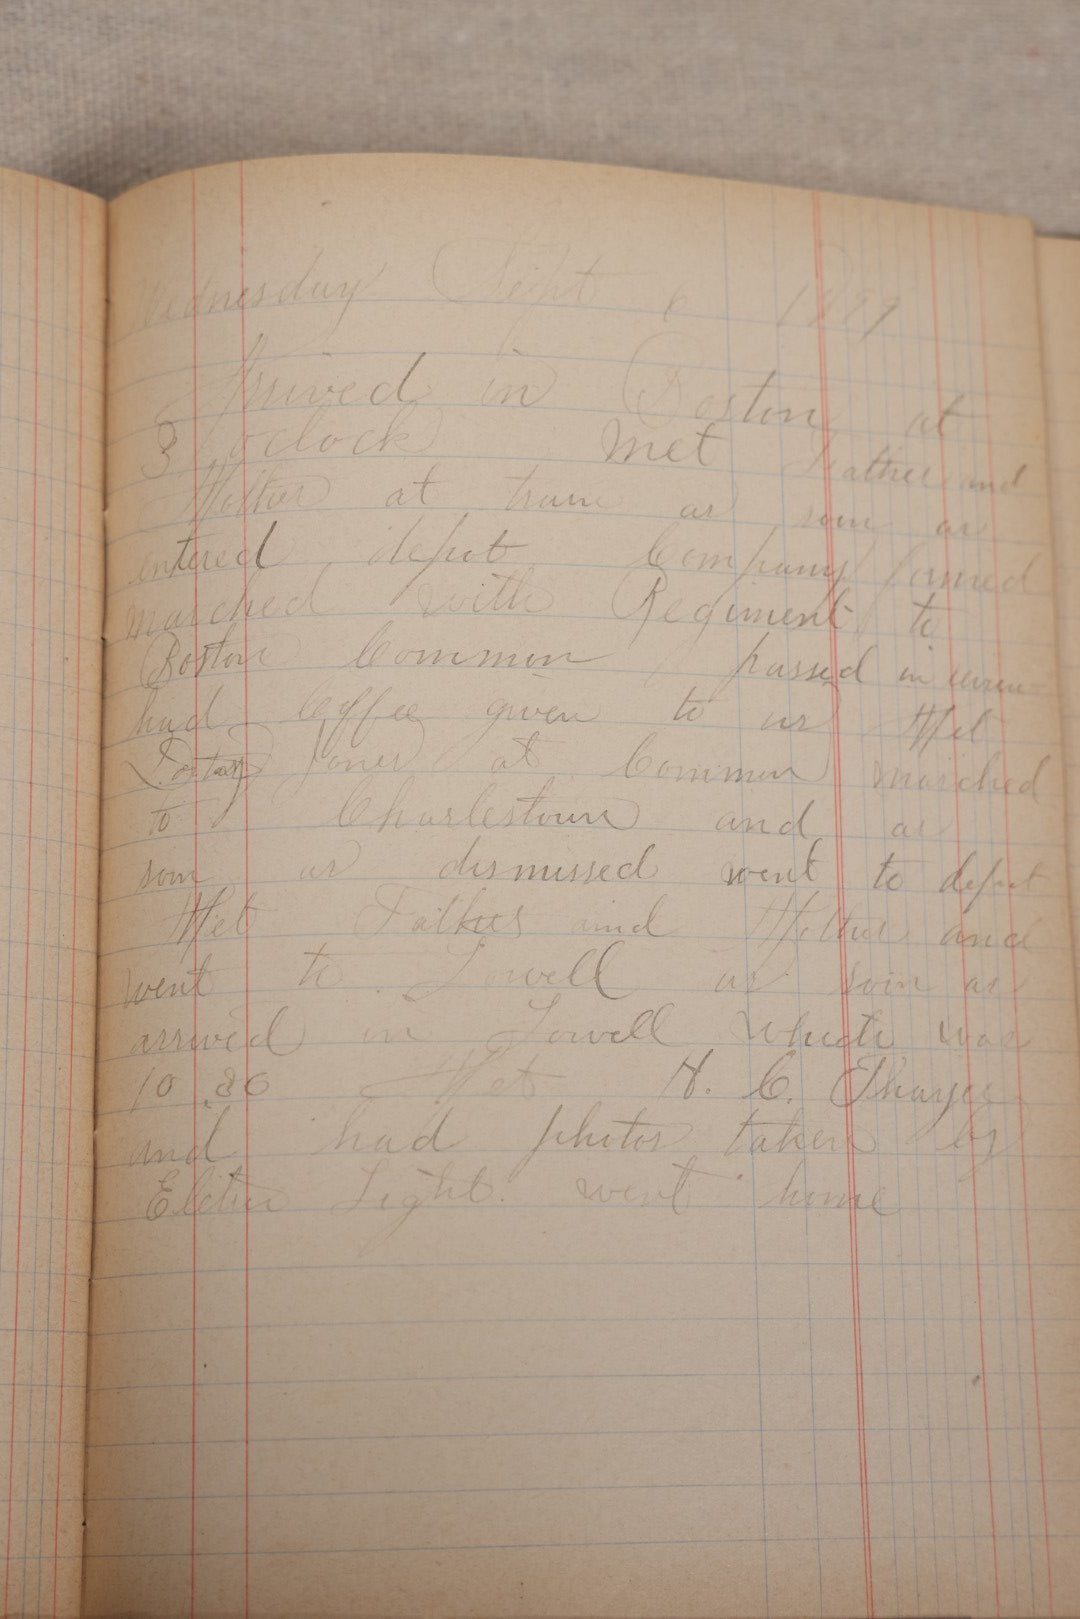 Wednesday Sept 6 1899
Arrived in Boston at
3 oclock Met Father and
Mother at train as soon as
entered depot Company formed
marched with Regiment to
Boston Common passed in review
had Coffee given to us Met
Jones at Common marched
to Charlestown and as
soon as dismissed went to depot
Met Father and Mother and
went to Lowell as soon as
arrived in Lowell which was
10.30 Met H. C. Thayer
and had photos taken by
Electric Light. went home